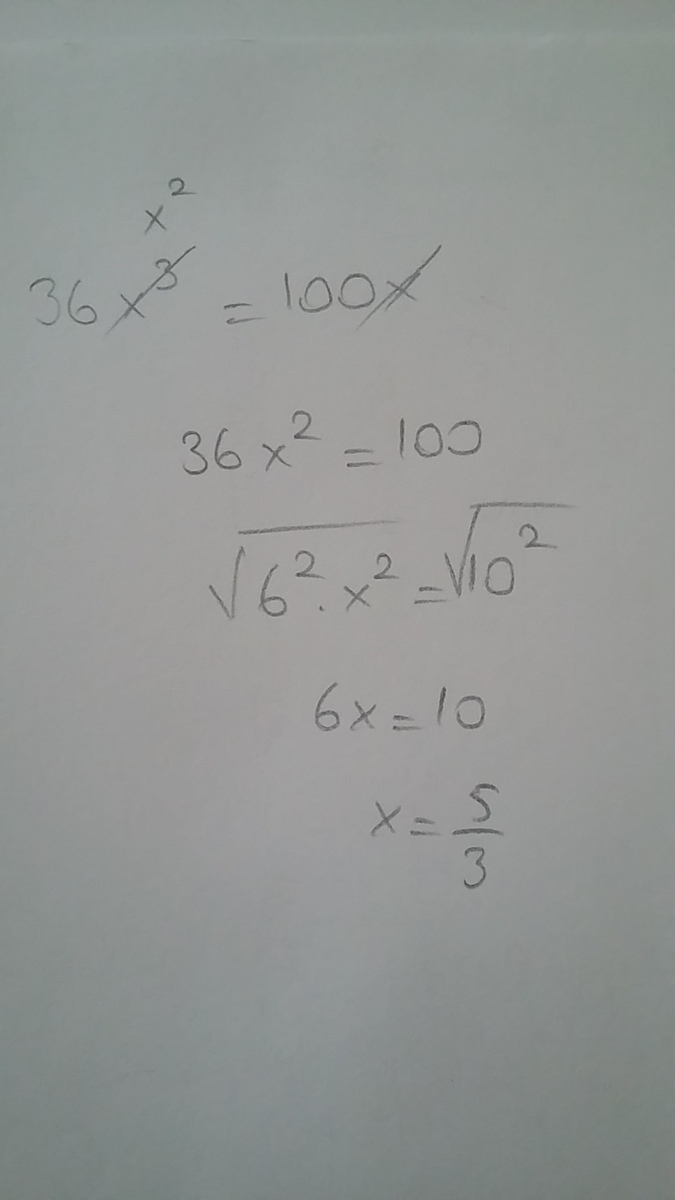 x²
36x³ = 100x
36x² = 100
√6².x² = √10²
6x = 10
x = 5/3